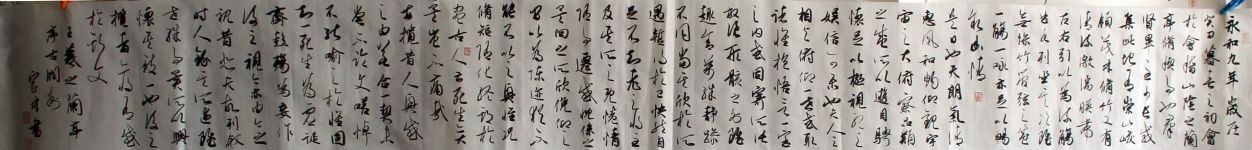 永和九年歲在
癸丑暮春之初會
於會稽山陰之蘭
亭脩禊事也群
賢畢至少長咸
集此地有崇山峻
領茂林脩竹又有
清流激湍映帶
左右引以為流觴
曲水列坐其次雖
無絲竹管弦之盛
一觴一詠亦足以暢
敘幽情
是日也天朗氣清
惠風和暢仰觀宇
宙之大俯察品類
之盛所以遊目騁
懷足以極視聽之
娛信可樂也夫人之
相與俯仰一世或取
諸懷抱悟言一室
之內或因寄所託
放浪形骸之外雖
趣舍萬殊靜躁
不同當其欣於所
遇暫得於己快然自
足不知老之將至
及其所之既倦情
隨事遷感慨係之
矣向之所欣俛仰之
間以為陳迹猶不
能不以之興懷況
脩短隨化終期於
盡古人云死生亦大
矣豈不痛哉
每攬昔人興感
之由若合一契未
嘗不臨文嗟悼
不能喻之於懷固
知一死生為虛誕
齊彭殤為妄作
後之視今亦由今之
視昔悲夫故列敘
時人錄其所述雖
世殊事異所以興
懷其致一也後之
攬者亦將有感
於斯文
王羲之蘭亭
序
書